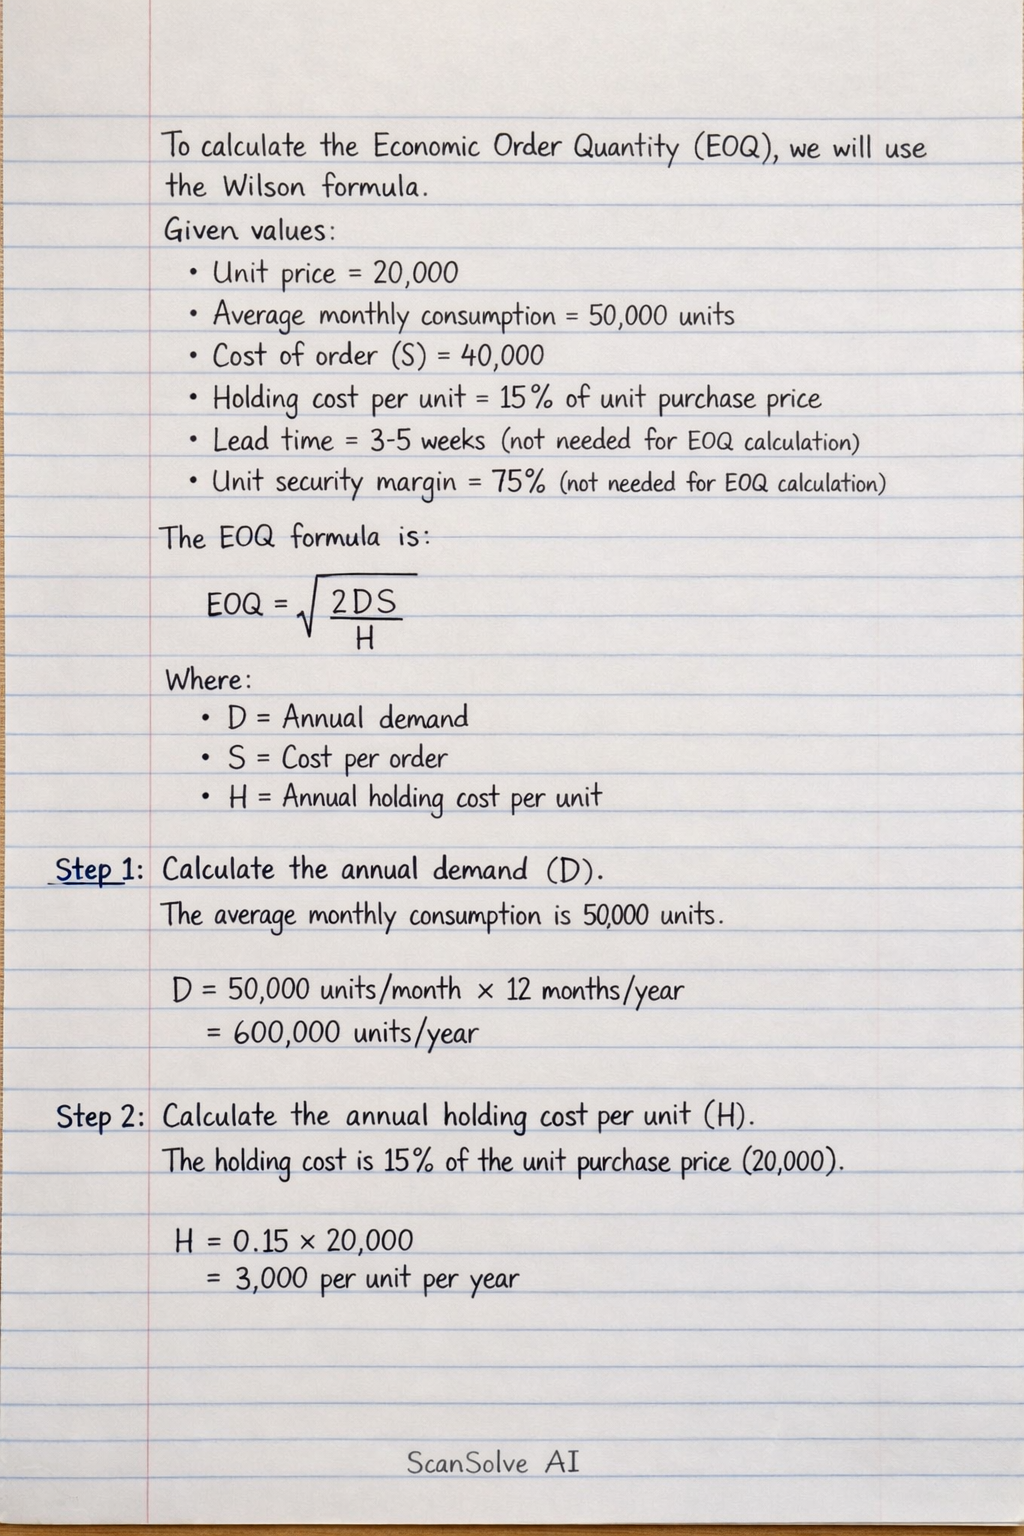 To calculate the Economic Order Quantity (EOQ), we will use
the Wilson formula.
Given values:
• Unit price = 20,000
• Average monthly consumption = 50,000 units
• Cost of order (S) = 40,000
• Holding cost per unit = 15% of unit purchase price
• Lead time = 3-5 weeks (not needed for EOQ calculation)
• Unit security margin = 75% (not needed for EOQ calculation)
The EOQ formula is:
EOQ = √(2DS / H)
Where:
• D = Annual demand
• S = Cost per order
• H = Annual holding cost per unit
Step 1: Calculate the annual demand (D).
The average monthly consumption is 50,000 units.
D = 50,000 units/month × 12 months/year
= 600,000 units/year
Step 2: Calculate the annual holding cost per unit (H).
The holding cost is 15% of the unit purchase price (20,000).
H = 0.15 × 20,000
= 3,000 per unit per year
ScanSolve AI